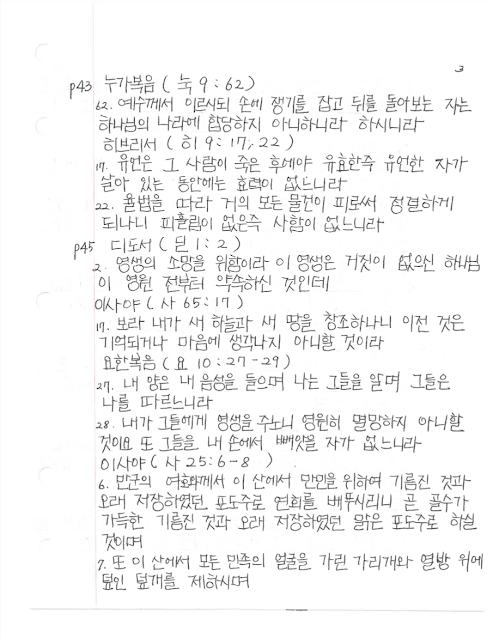 3
p43 누가복음 ( 눅 9 : 62 )
62. 예수께서 이르시되 손에 쟁기를 잡고 뒤를 돌아보는 자는
하나님의 나라에 합당하지 아니하니라 하시니라
히브리서 ( 히 9 : 17, 22 )
17. 유언은 그 사람이 죽은 후에야 유효한즉 유언한 자가
살아 있는 동안에는 효력이 없느니라
22. 율법을 따라 거의 모든 물건이 피로써 정결하게
되나니 피흘림이 없은즉 사함이 없느니라
p45 디도서 ( 딛 1 : 2 )
2. 영생의 소망을 위함이라 이 영생은 거짓이 없으신 하나님
이 영원 전부터 약속하신 것인데
이사야 ( 사 65 : 17 )
17. 보라 내가 새 하늘과 새 땅을 창조하나니 이전 것은
기억되거나 마음에 생각나지 아니할 것이라
요한복음 ( 요 10 : 27 - 29 )
27. 내 양은 내 음성을 들으며 나는 그들을 알며 그들은
나를 따르느니라
28. 내가 그들에게 영생을 주노니 영원히 멸망하지 아니할
것이요 또 그들을 내 손에서 빼앗을 자가 없느니라
이사야 ( 사 25 : 6 - 8 )
6. 만군의 여호와께서 이 산에서 만민을 위하여 기름진 것과
오래 저장하였던 포도주로 연회를 베푸시리니 곧 골수가
가득한 기름진 것과 오래 저장하였던 맑은 포도주로 하실
것이며
7. 또 이 산에서 모든 민족의 얼굴을 가린 가리개와 열방 위에
덮인 덮개를 제하시며